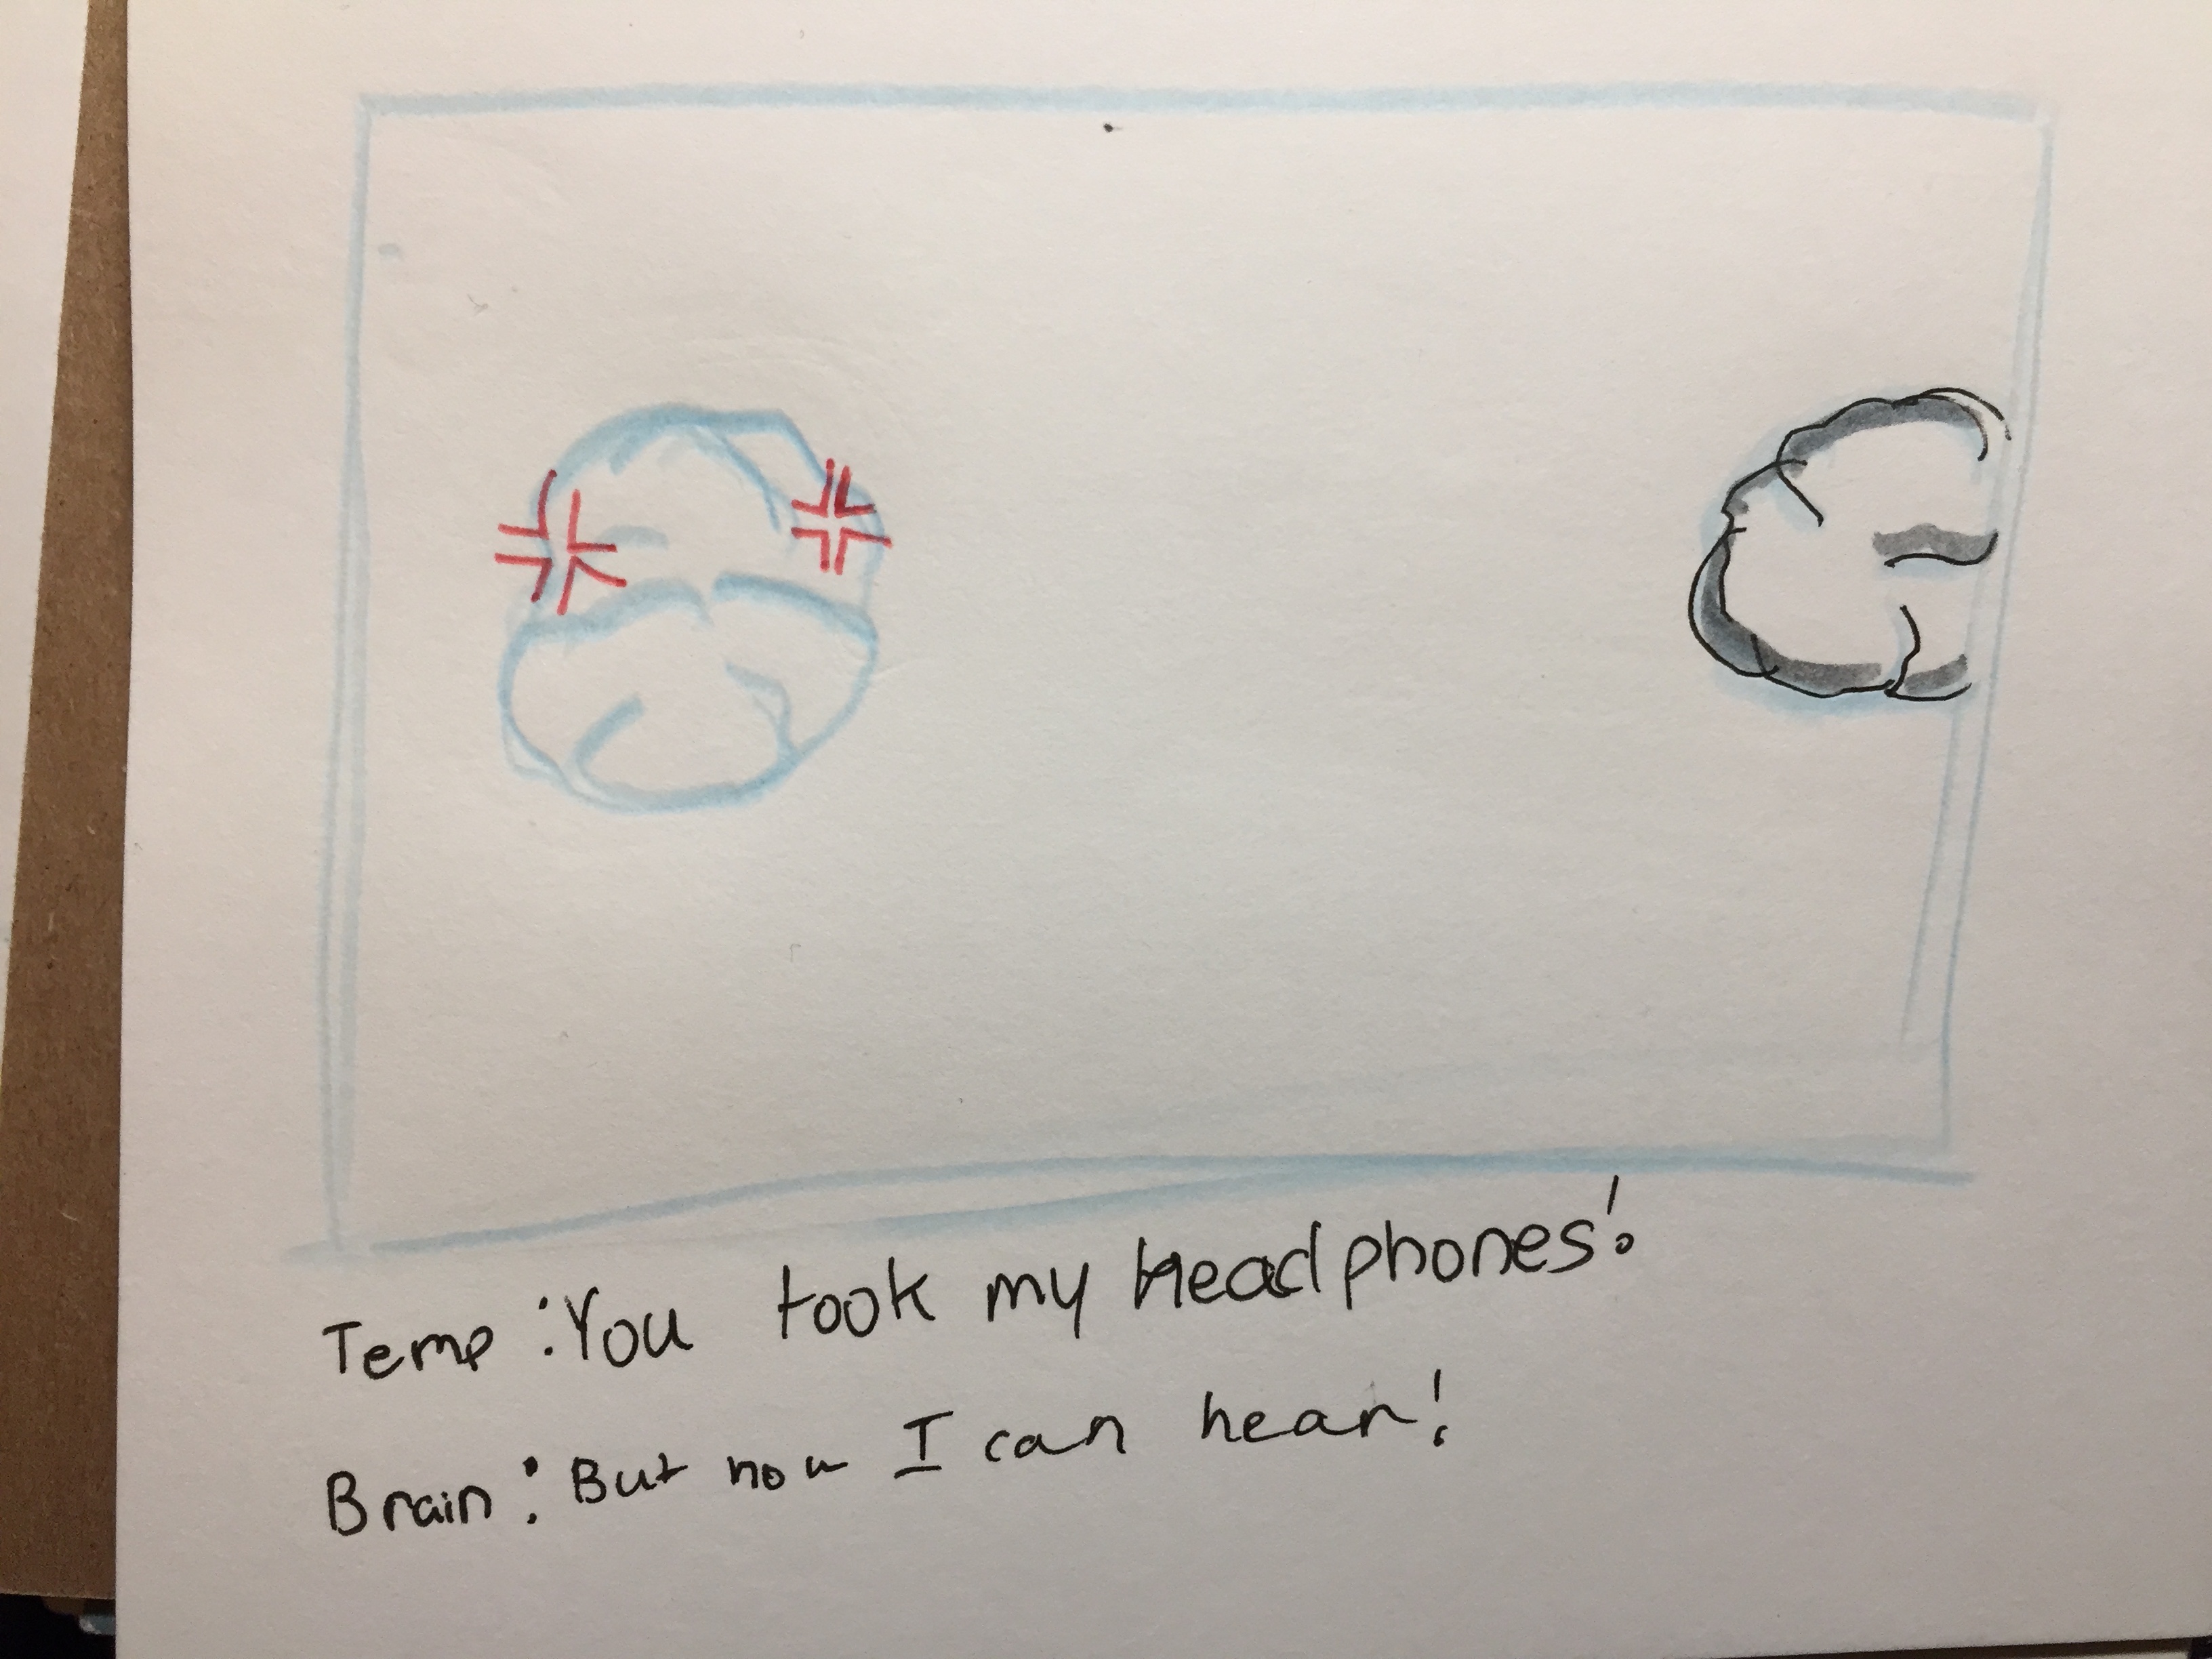 Temp: You took my Headphones!
Brain: But now I can hear!